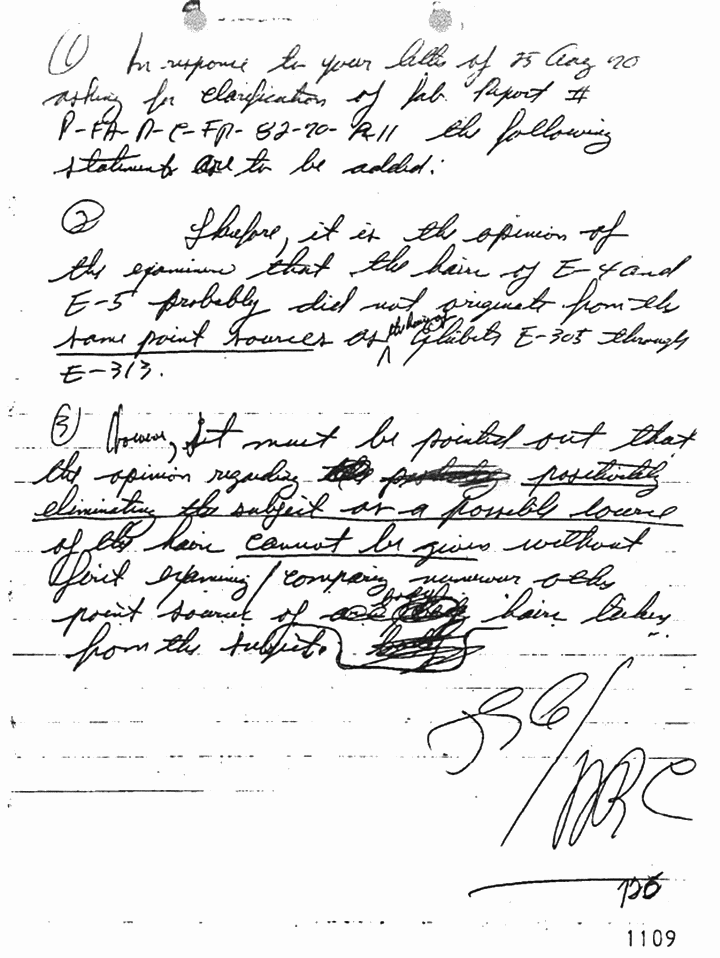 (1) In response to your letter of 25 Aug 70
asking for clarification of Lab. Report #
P-FA-D-C-FP-82-70-R-11 the following
statements are to be added:
(2) Therefore, it is the opinion of
the examiner that the hairs of E-4 and
E-5 probably did not originate from the
same point sources as the hairs of Exhibits E-305 through
E-313.
(3) However, it must be pointed out that
the opinion regarding positively
eliminating the subject as a possible source
of the hairs cannot be given without
first examining/comparing numerous other
point sources of body hairs taken
from the subject.
/
120
1109